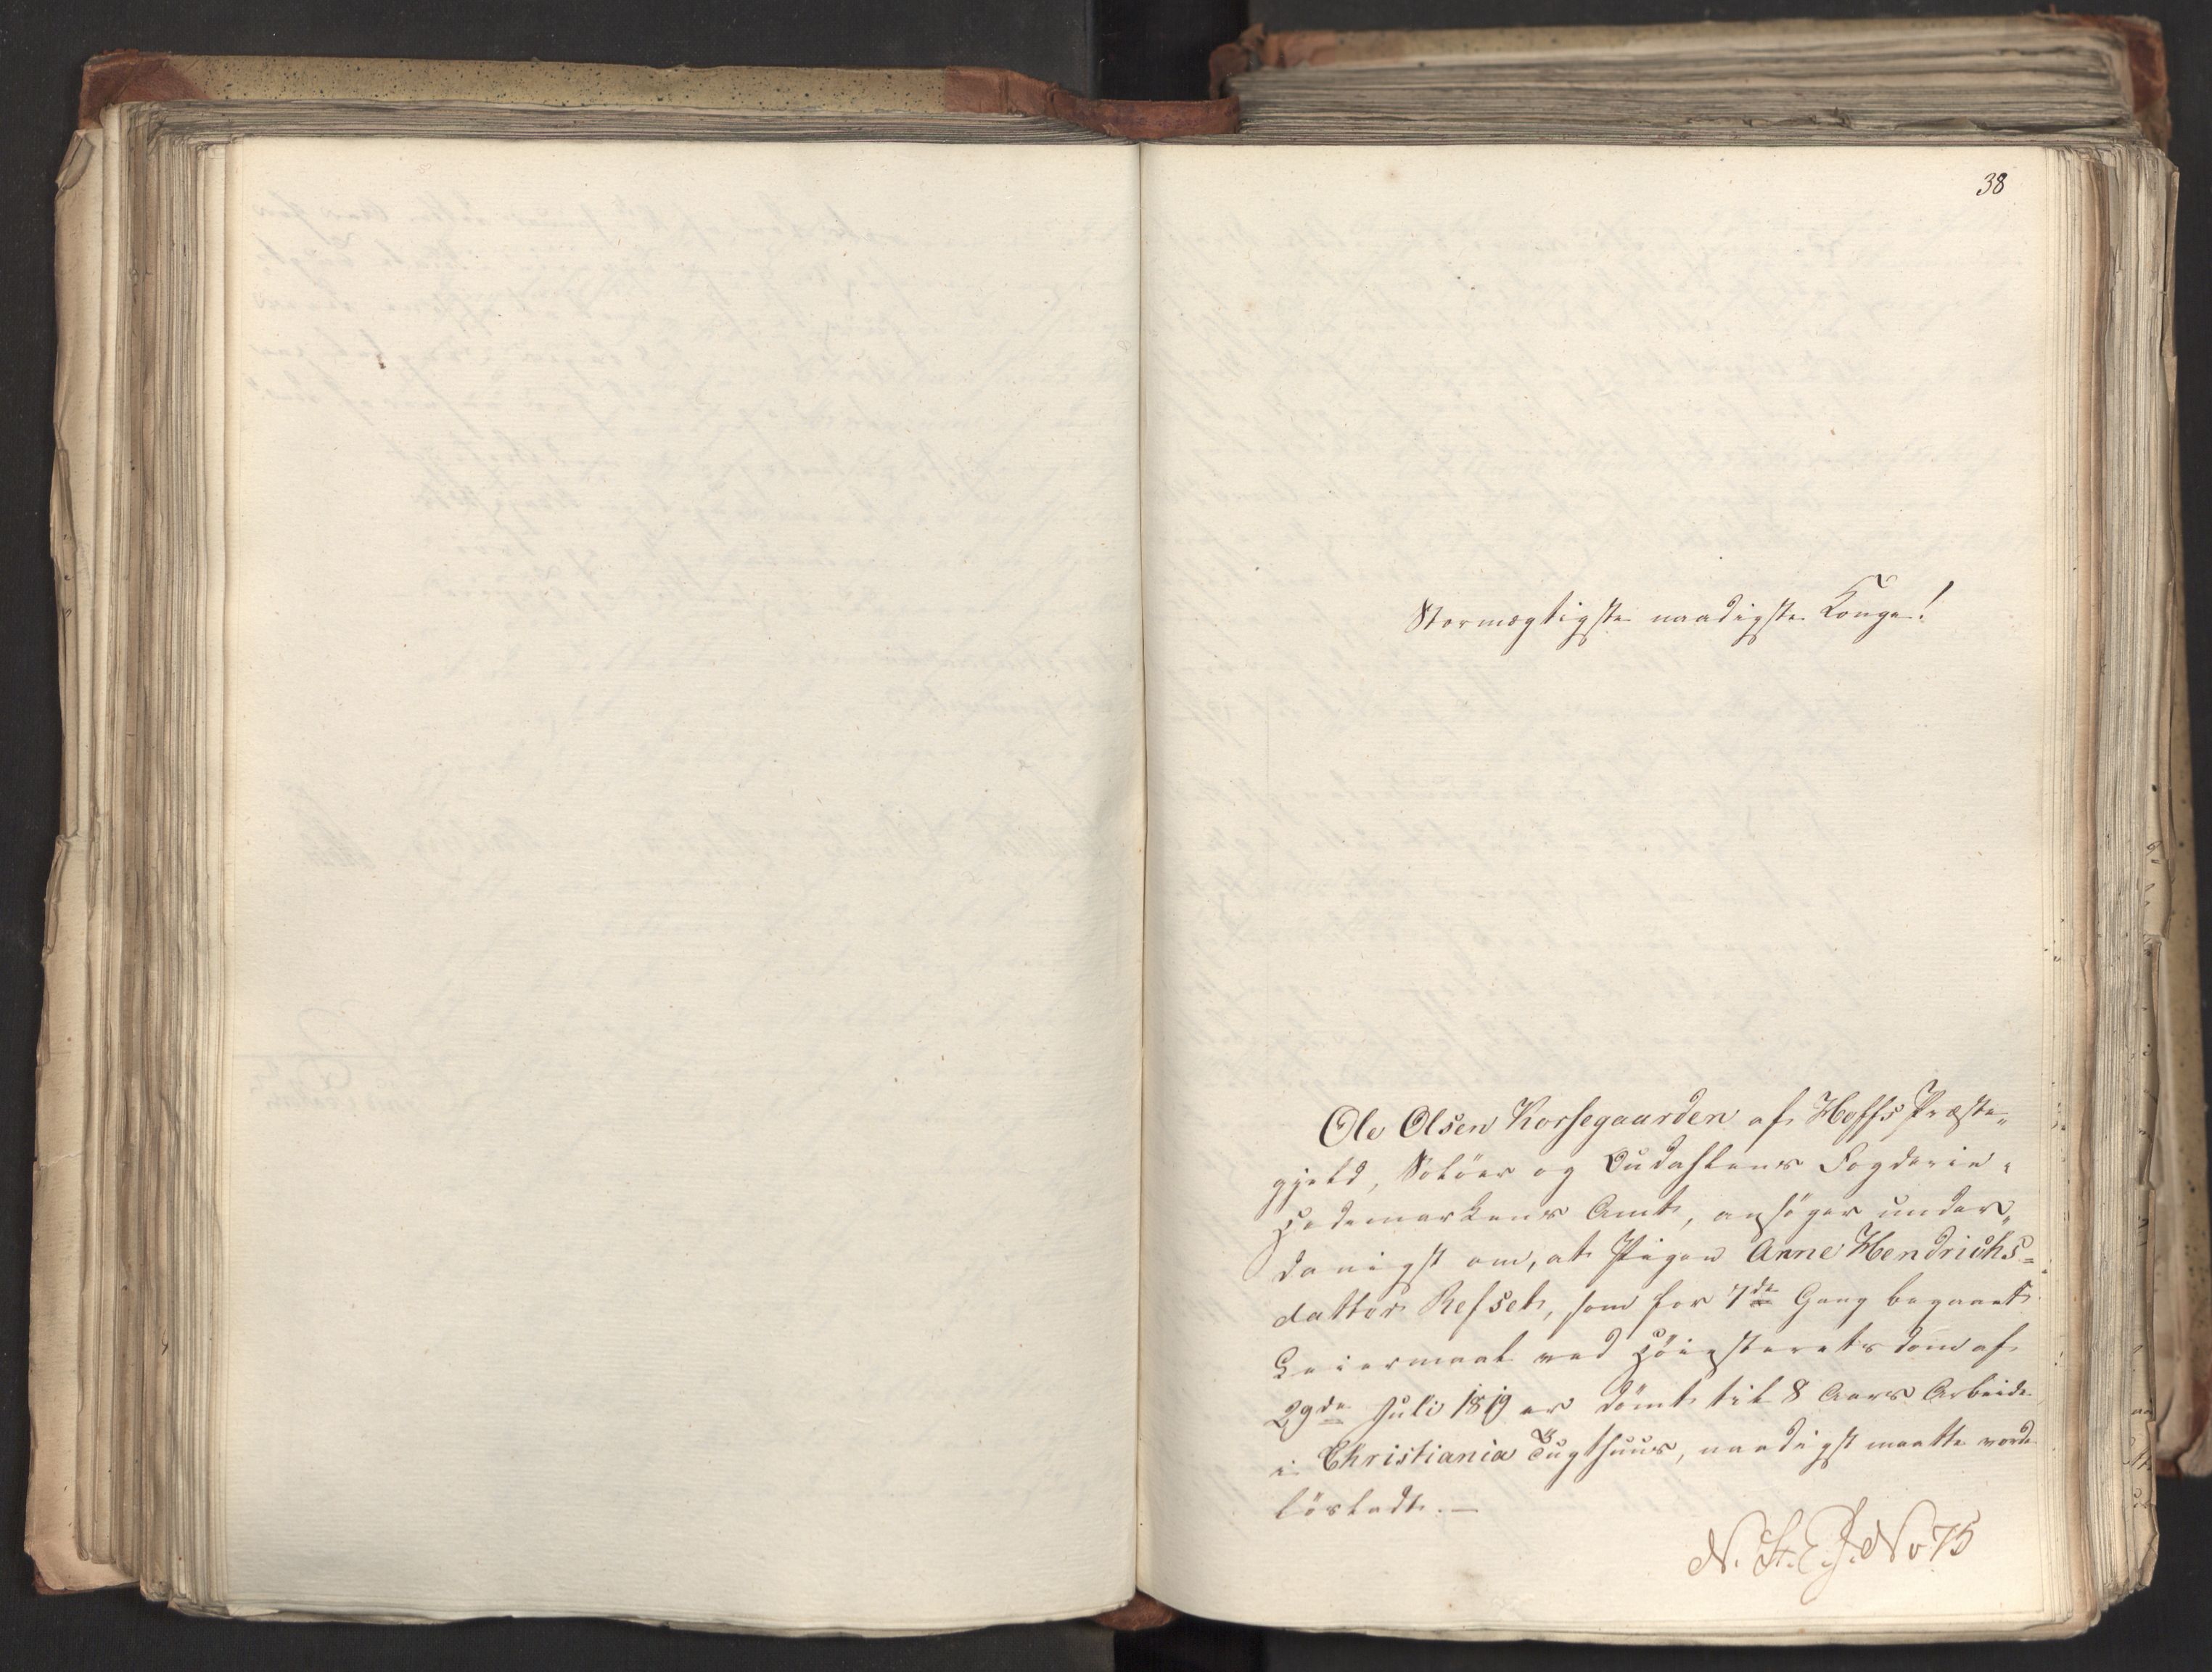 38
Stormægtigste naadigste Konge!
Ole Olsen Korsegaarden af Hoffs Præste„
gjeld, Soløer og Oudahlens Fogderie,
Hedemarkens Amt, ansøger under„
danigst om, at Pigen Anne Hendrichs=
datter Refset, som for 7de Gang begaaet
Leiermaal ved Höiesterets Dom af
29de Juli 1819 er dömt til 8 Aars Arbeide
i Christiania Tugthuus, naadigst maatte vorde
lösladt. —
N. St. E. J. No 75